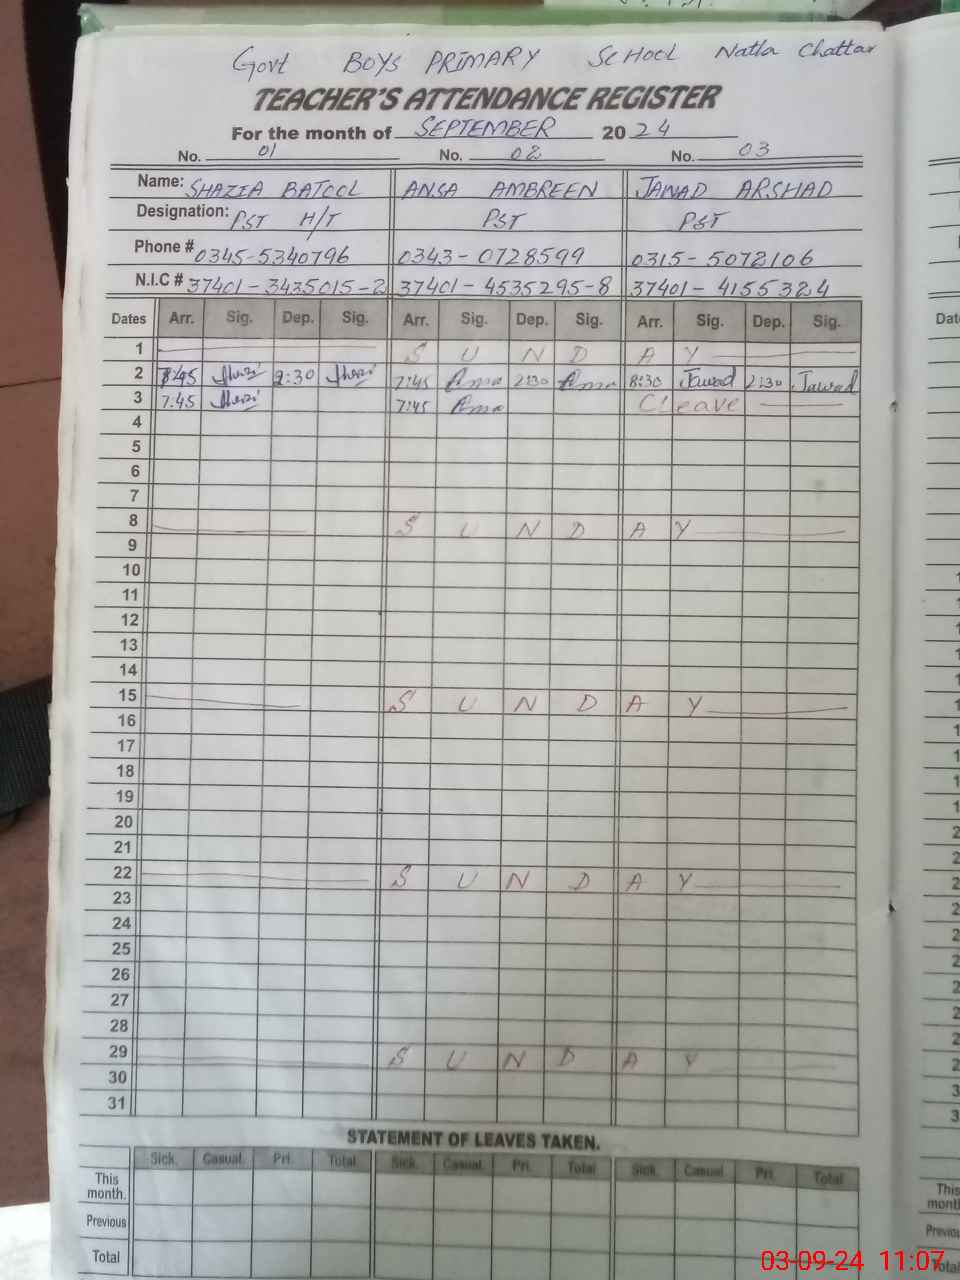 Govt BOYS PRIMARY SCHOOL Natla Chattar
TEACHER'S ATTENDANCE REGISTER
For the month of SEPTEMBER 2024
No. 01 No. 02 No. 03
Name: SHAZIA BATOOL ANSA AMBREEN JAWAD ARSHAD
Designation: PST H/T PST PST
Phone # 0345-5340796 0343-0728599 0315-5072106
N.I.C # 37401-3435015-2 37401-4535295-8 37401-4155324
Dates Arr. Sig. Dep. Sig. Arr. Sig. Dep. Sig. Arr. Sig. Dep. Sig.
1 S U N D A Y
2 7:45 2:30 7:45 2:30 8:30 Jawad 2:30 Jawad
3 7:45 7:45 CLeave
4
5
6
7
8 S U N D A Y
9
10
11
12
13
14
15 S U N D A Y
16
17
18
19
20
21
22 S U N D A Y
23
24
25
26
27
28
29 S U N D A Y
30
31
STATEMENT OF LEAVES TAKEN.
Sick. Casual. Pri. Total Sick. Casual. Pri. Total Sick. Casual Pri. Total
This month.
Previous
Total
03-09-24 11:07